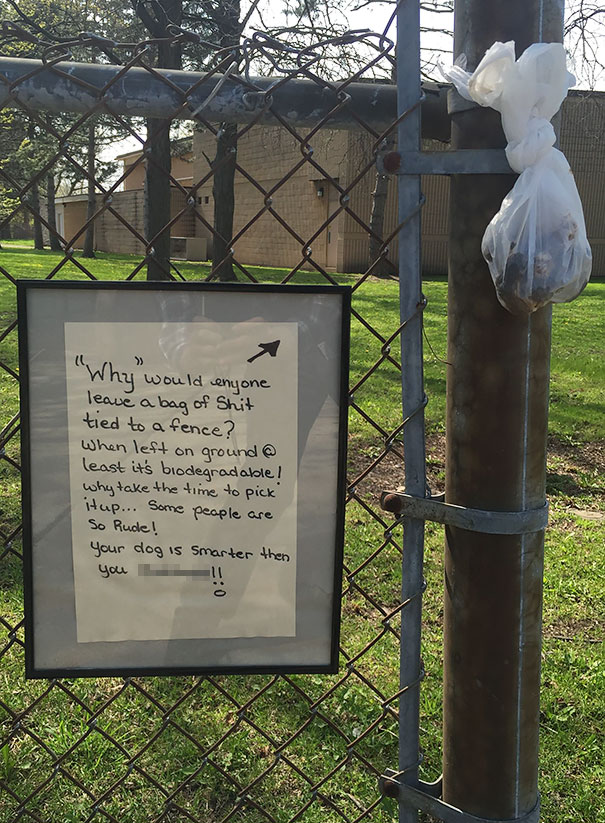 "Why" would anyone
leave a bag of Shit
tied to a fence?
When left on ground @
least it's biodegradable!
why take the time to pick
it up... Some people are
So Rude!
your dog is smarter then
you !!